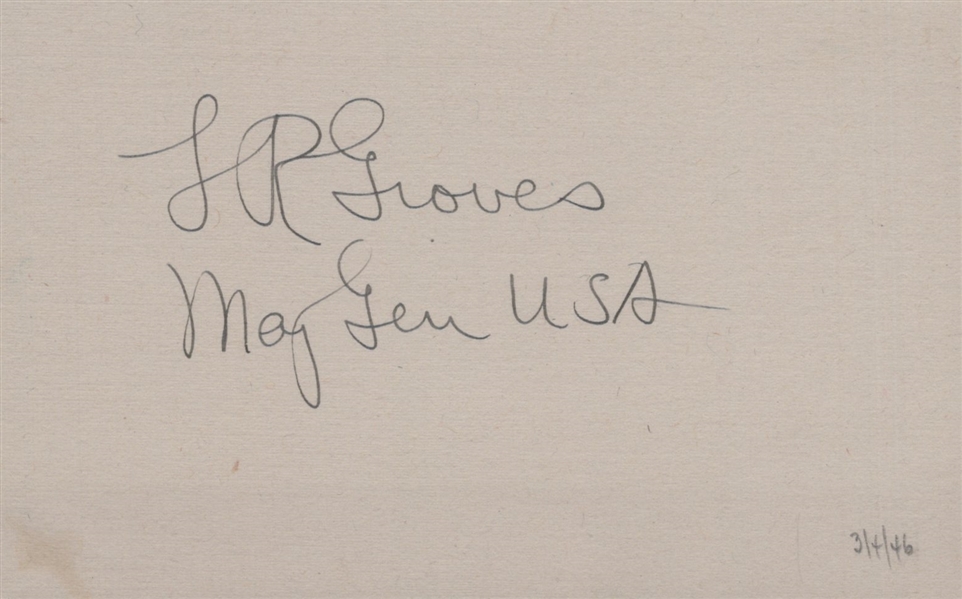 L R Groves
Maj Gen USA
3/4/46